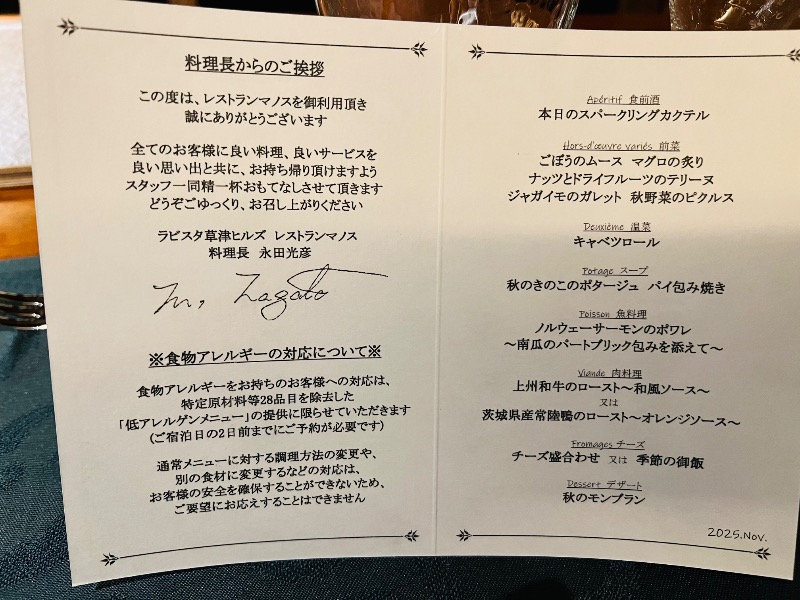 料理長からのご挨拶
この度は、レストランマノスを御利用頂き
誠にありがとうございます
全てのお客様に良い料理、良いサービスを
良い思い出と共に、お持ち帰り頂けますよう
スタッフ一同精一杯おもてなしさせて頂きます
どうぞごゆっくり、お召し上がりください
ラビスタ草津ヒルズ レストランマノス
料理長 永田光彦
※食物アレルギーの対応について※
食物アレルギーをお持ちのお客様への対応は、
特定原材料等28品目を除去した
「低アレルゲンメニュー」の提供に限らせていただきます
(ご宿泊日の2日前までにご予約が必要です)
通常メニューに対する調理方法の変更や、
別の食材に変更するなどの対応は、
お客様の安全を確保することができないため、
ご要望にお応えすることはできません
Apéritif 食前酒
本日のスパークリングカクテル
Hors-d'œuvre variés 前菜
ごぼうのムース マグロの炙り
ナッツとドライフルーツのテリーヌ
ジャガイモのガレット 秋野菜のピクルス
Deuxième 温菜
キャベツロール
Potage スープ
秋のきのこのポタージュ パイ包み焼き
Poisson 魚料理
ノルウェーサーモンのポワレ
～南瓜のパートブリック包みを添えて～
Viande 肉料理
上州和牛のロースト～和風ソース～
又は
茨城県産常陸鴨のロースト～オレンジソース～
Fromages チーズ
チーズ盛合わせ 又は 季節の御飯
Dessert デザート
秋のモンブラン
2025.Nov.